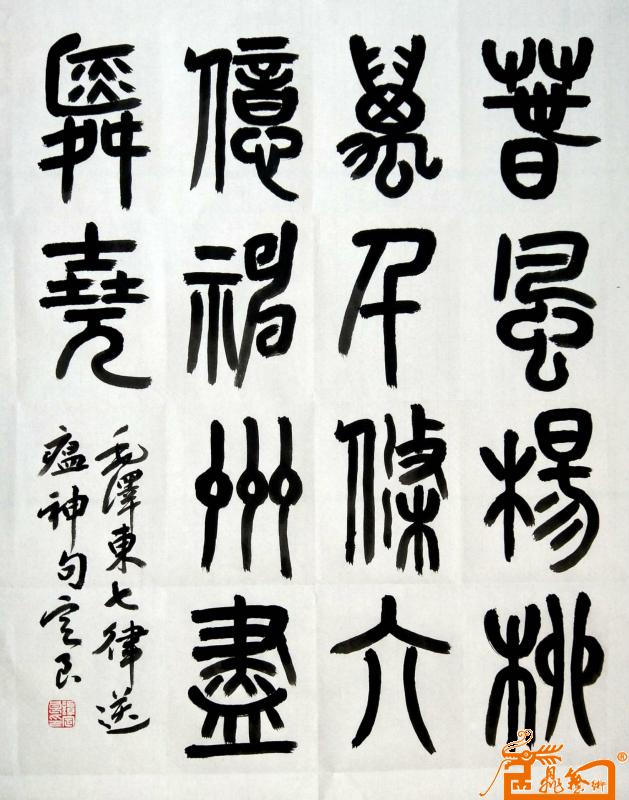 春風楊柳
萬千條六
億神州盡
舜堯
毛澤東七律送
瘟神句